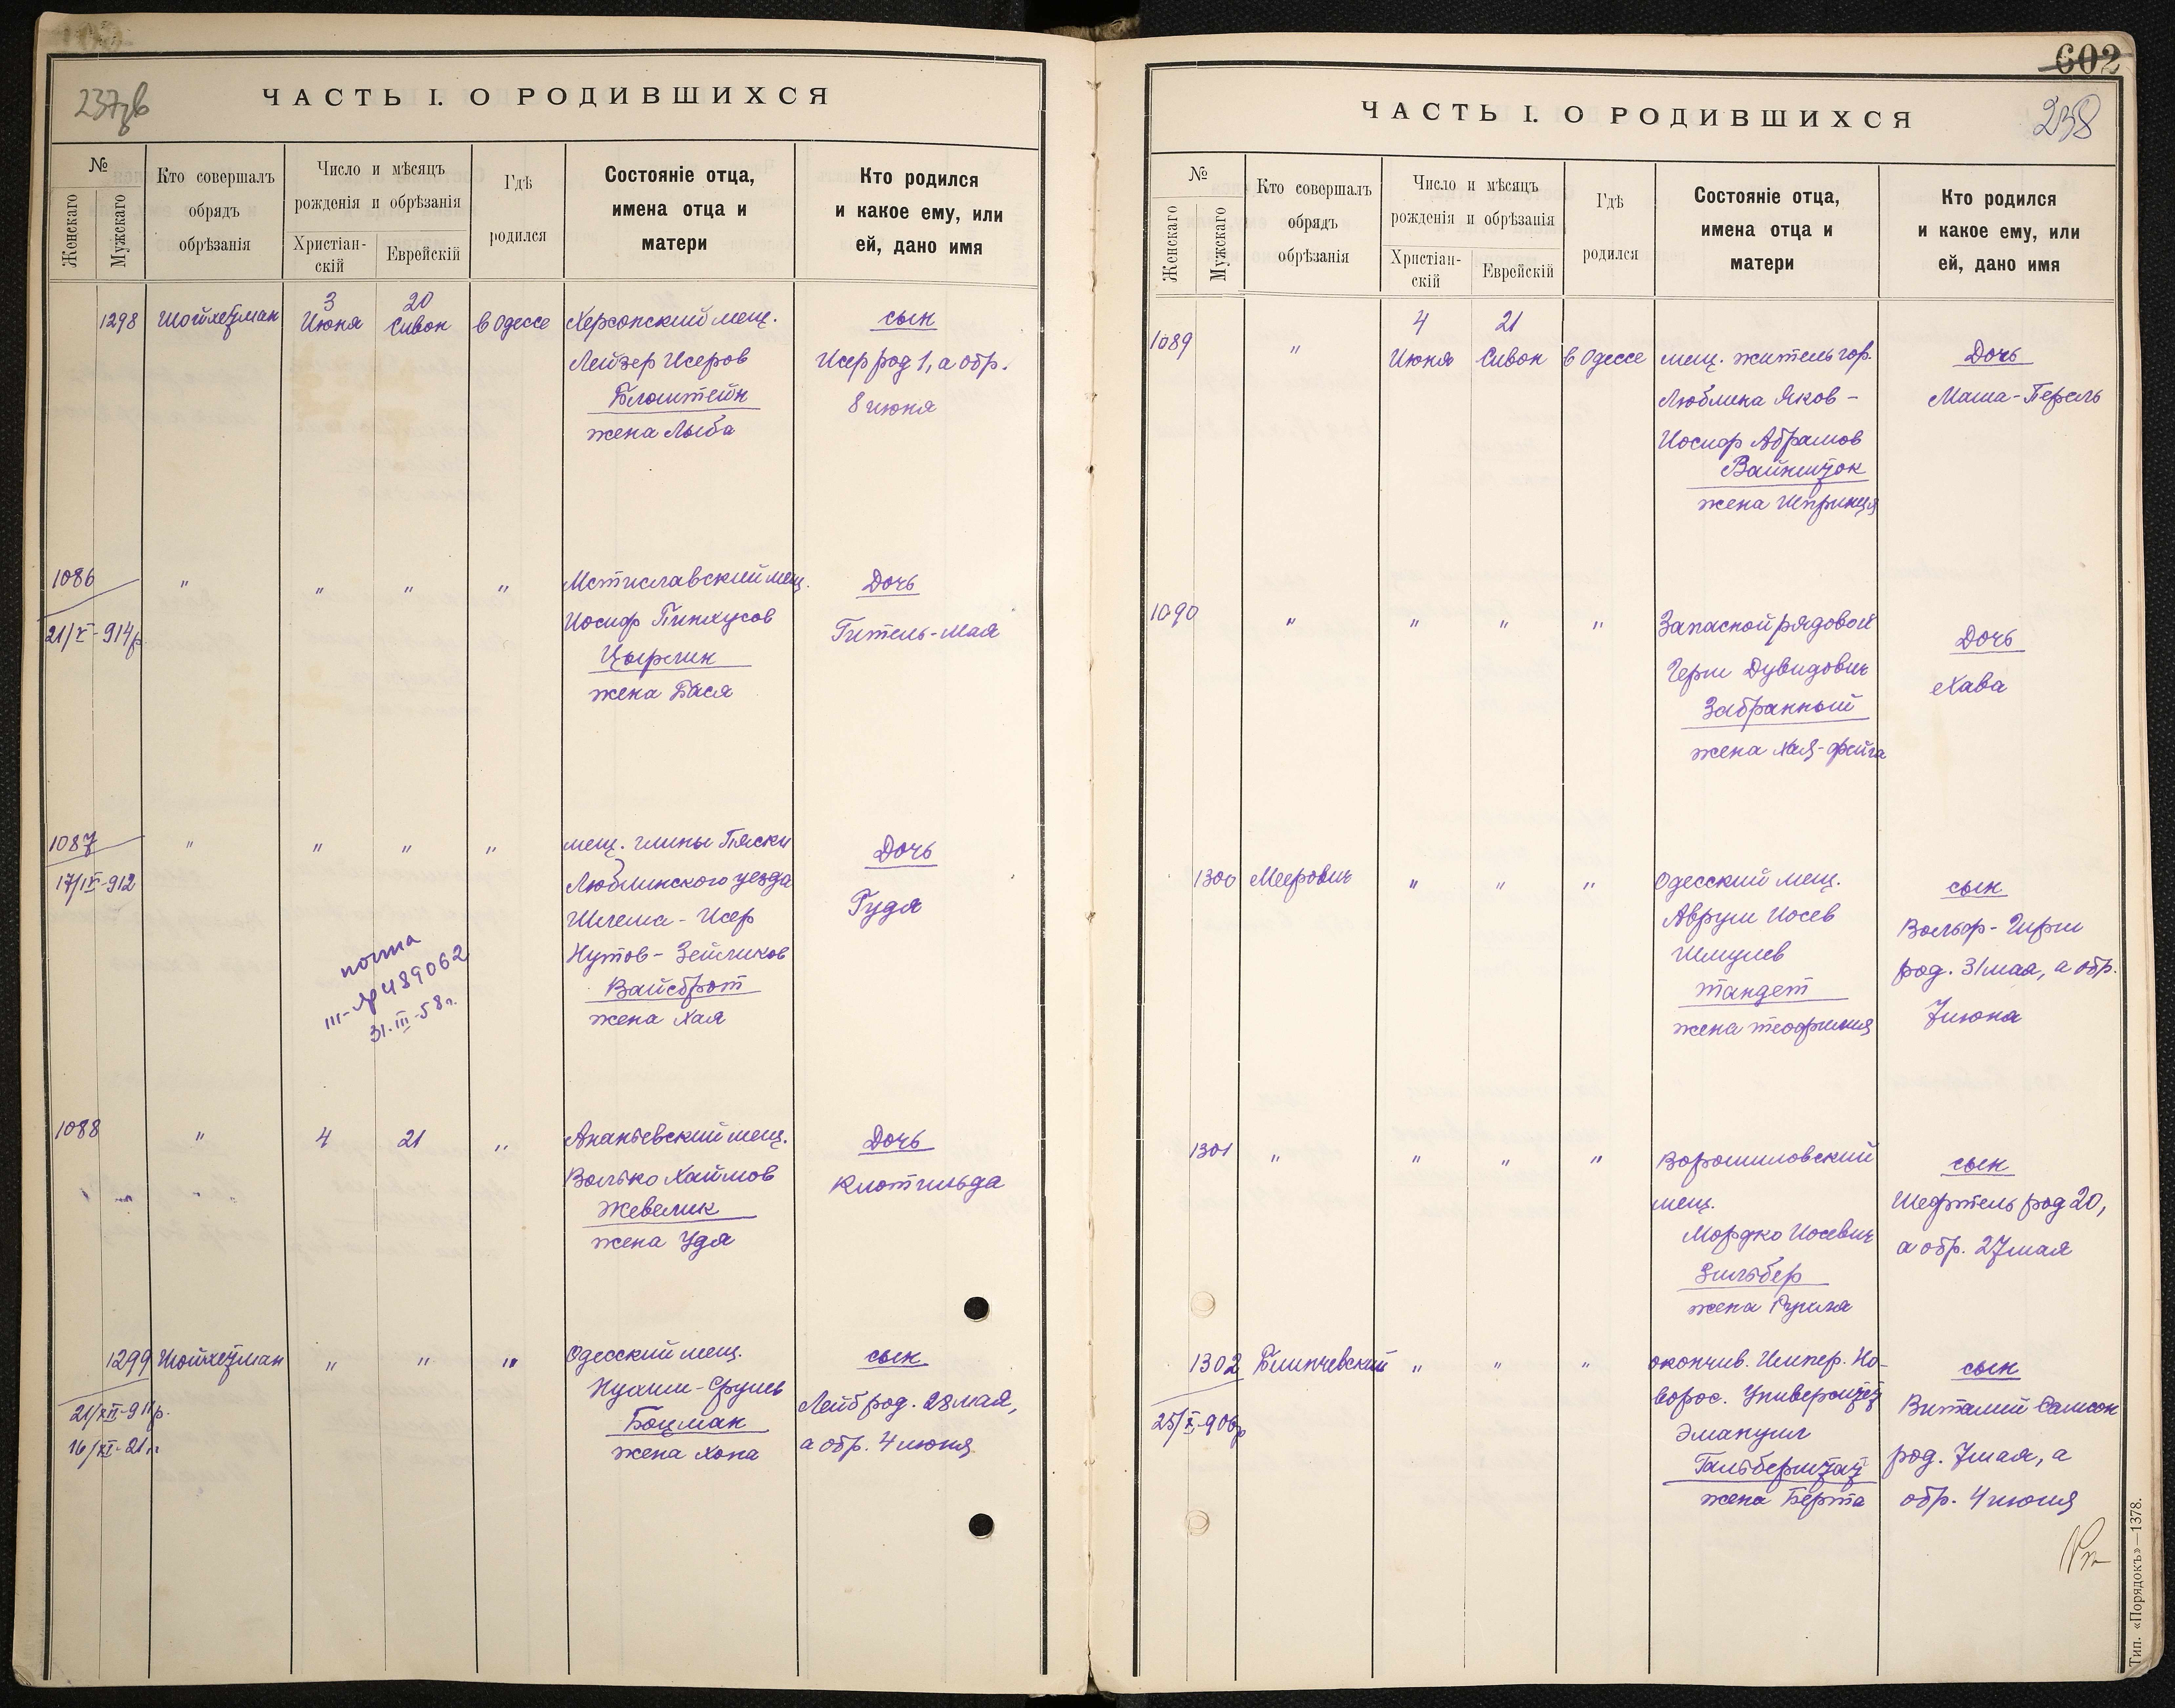 237зв
ЧАСТЬ I. О РОДИВШИХСЯ
№
Женскаго
Мужскаго
Кто совершалъ
обрядъ
обрѣзанія
Число и мѣсяцъ
рожденія и обрѣзанія
Христіан-
скій
Еврейскій
Гдѣ
родился
Состояніе отца,
имена отца и
матери
Кто родился
и какое ему, или
ей, дано имя
3 20
1298 Шойхетман Июня Сивон в Одессе Херсонский мещ. сын
Лейзер Исеров Исер род 1, а обр.
Блоштейн 8 июня
жена Лыба
1086 " " " " Мстиславский мещ. Дочь
21/V-914р. Иосиф Пинхусов Гитель-Мая
Цырлин
жена Бася
1087 " " " " мещ. гмины Пяски Дочь
17/IX-912 Люблинского уезда Гудя
Шлема-Исер
Нутов-Зейликов
Вайсброт
жена Хая
почта
III-ЯР 489062
31.III-58г.
1088 " 4 21 " Ананьевский мещ. Дочь
Волько Хаимов Клотильда
Жевелик
жена Удя
1299 Шойхетман " " " Одесский мещ. сын
21/XII-911р. Нухим-Сруль Лейб род. 28 мая,
16/XI-21г. Боцман а обр. 4 июня
жена Хона
602
238
ЧАСТЬ I. О РОДИВШИХСЯ
№
Женскаго
Мужскаго
Кто совершалъ
обрядъ
обрѣзанія
Число и мѣсяцъ
рожденія и обрѣзанія
Христіан-
скій
Еврейскій
Гдѣ
родился
Состояніе отца,
имена отца и
матери
Кто родился
и какое ему, или
ей, дано имя
4 21
1089 " Июня Сивон в Одессе мещ. житель гор. Дочь
Люблина Яков- Маша-Перель
Иосиф Абрамов
Вайншток
жена Шпринця
1090 " " " " Запасной рядовой Дочь
Герш Дувидович Хава
Забранный
жена Хая-Фейга
1300 Меерович " " " Одесский мещ. сын
Аврум Иосев Вольф-Гирш
Шмулев род. 31 мая, а обр.
Тандет 7 июня
жена Теофилия
1301 " " " " Ворошиловский сын
мещ. Шефтель род 20,
Мордко Иосевич а обр. 27 мая
Зильбер
жена Рухля
1302 " " " окончив. Импер. Но-
25/X-906р ворос. Университет сын
Эмануил Виталий Самсон
Гальберштат род. 7 мая, а
жена Берта обр. 4 июня
Тип. «Порядокъ»—1378.